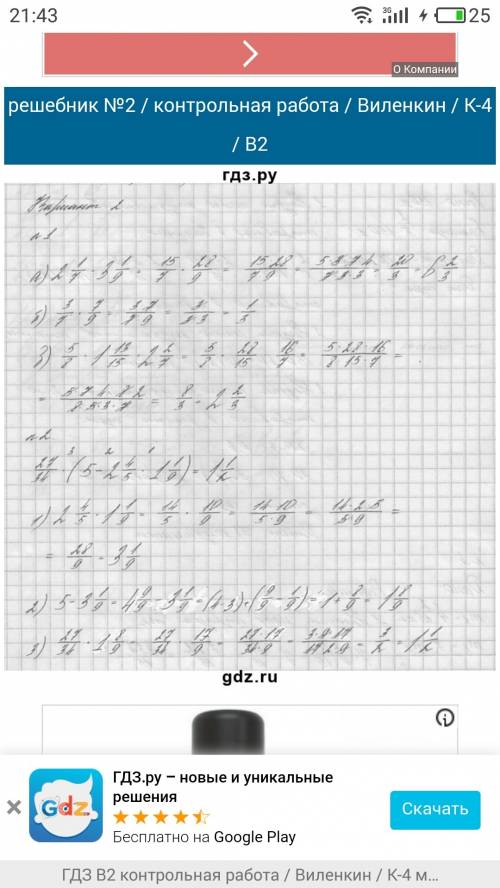 21:43 3G 25
О Компании
решебник №2 / контрольная работа / Виленкин / К-4
/ В2
гдз.ру
Вариант 2
№1
а) 2 1/7 · 3 1/9 = 15/7 · 28/9 = 15·28/7·9 = 5·3·7·4/7·3·3 = 20/3 = 6 2/3
б) 3/7 · 7/9 = 3·7/7·9 = 3/3·3 = 1/3
в) 5/8 · 1 13/15 · 2 2/7 = 5/8 · 28/15 · 16/7 = 5·28·16/8·15·7 =
= 5·7·4·8·2/8·5·3·7 = 8/3 = 2 2/3
№2
3 2 1
27/34 · (5 - 2 4/5 · 1 1/9) = 1 1/2
1) 2 4/5 · 1 1/9 = 14/5 · 10/9 = 14·10/5·9 = 14·2·5/5·9 =
= 28/9 = 3 1/9
2) 5 - 3 1/9 = 4 9/9 - 3 1/9 = (4-3) + (9/9 - 1/9) = 1 + 8/9 = 1 8/9
3) 27/34 · 1 8/9 = 27/34 · 17/9 = 27·17/34·9 = 3·9·17/17·2·9 = 3/2 = 1 1/2
gdz.ru
Gdz
ГДЗ.ру – новые и уникальные
решения
Бесплатно на Google Play
Скачать
ГДЗ В2 контрольная работа / Виленкин / К-4 м...